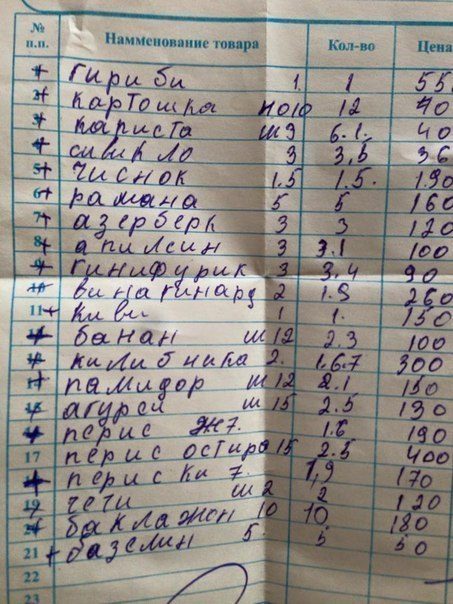 № п.п. Намменование товара Кол-во Цена
1 гириби 1. 1 55
2 картошка но10 12 40
3 кариста ш9 6.1. 40
4 сивикло 3 3,5 36
5 чиснок 1.5 1.5. 190
6 рамана 5 5 160
7 азерберк 3 3 120
8 апилсин 3 3.1 100
9 гинифурик 3 3,4 90
10 винагинард 2 1.9 260
11 киви 1 1. 150
банан ш12 2.3 100
килибника 2. 1.6.7 300
памидор ш12 2.1 150
агурси ш15 2.5 130
перис ж7. 1.6 190
17 перис остиро 15 2.5 400
перис ки 7. 1,9 170
19 чечи ш2 2 120
20 баклажон 10 10 180
21 базелин 5. 5 50
22
23